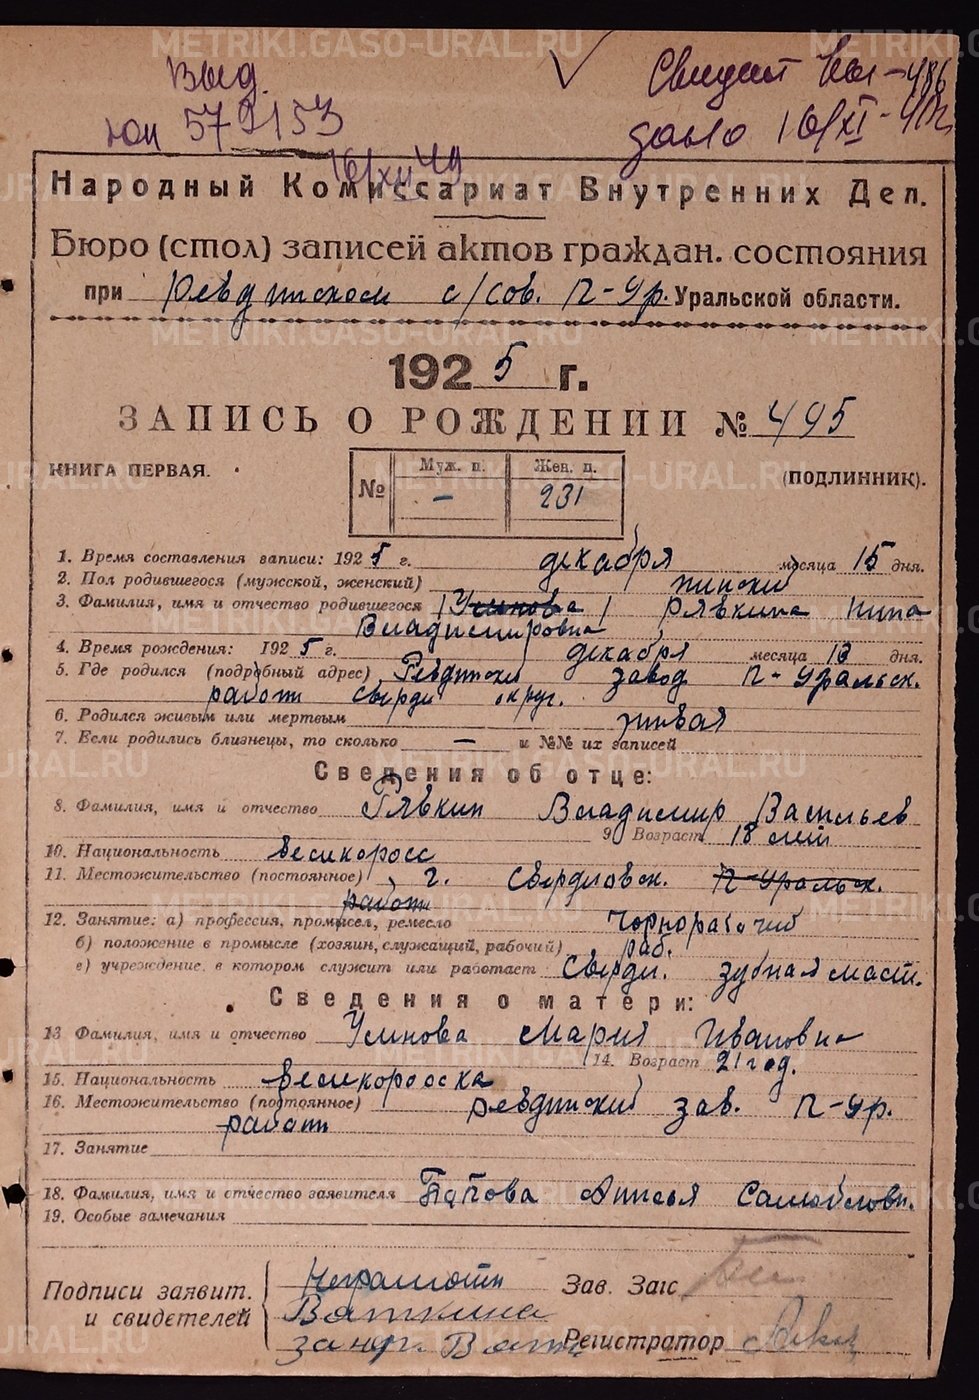 METRIKI.GASO-URAL.RU
Выд.
юп 579153
16/XII 49
Свидет вы -486
дано 16/XI-40г
Народный Комиссариат Внутренних Дел.
Бюро (стол) записей актов граждан. состояния
при Ревдинском с/сов. П-Ур. Уральской области.
1925 г.
ЗАПИСЬ О РОЖДЕНИИ № 495
КНИГА ПЕРВАЯ.
(ПОДЛИННИК).
№ Муж. п. Жен. п.
– 231
1. Время составления записи: 1925 г. декабря месяца 15 дня.
2. Пол родившегося (мужской, женский) женский
3. Фамилия, имя и отчество родившегося /Умнова/ Рявкина Нина
Владимировна
4. Время рождения: 1925 г. декабря месяца 13 дня.
5. Где родился (подробный адрес) Ревдинский завод П-Уральск.
район Свердл округ.
6. Родился живым или мертвым живая
7. Если родились близнецы, то сколько — и №№ их записей
Сведения об отце:
8. Фамилия, имя и отчество Рявкин Владимир Васильев
9. Возраст 18 лет
10. Национальность великоросс
11. Местожительство (постоянное) г. Свердловск. П-Уральск.
район
12. Занятие: а) профессия, промысел, ремесло Чорнорабочий
б) положение в промысле (хозяин, служащий, рабочий) раб.
в) учреждение, в котором служит или работает Свердл. зубная маст.
Сведения о матери:
13 Фамилия, имя и отчество Умнова Мария Ивановна
14. Возраст 21 год.
15. Национальность великоросска
16. Местожительство (постоянное) Ревдинский зав. П-Ур.
район
17. Занятие
18. Фамилия, имя и отчество заявителя Попова Анисья Самойловн.
19. Особые замечания
Подписи заявит. и свидетелей
Неграмотн
Вяткина
за негр. Вятк
Зав. Загс
Регистратор